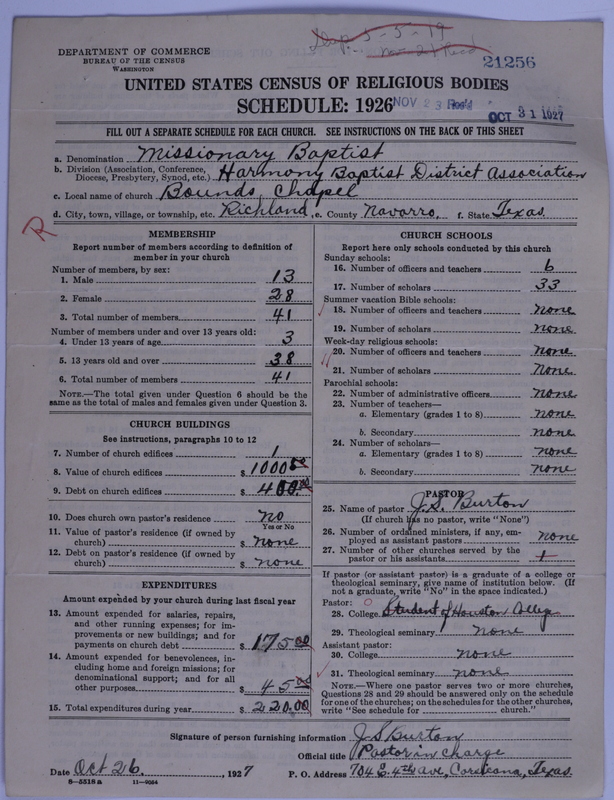 DEPARTMENT OF COMMERCE
BUREAU OF THE CENSUS
WASHINGTON
21256
UNITED STATES CENSUS OF RELIGIOUS BODIES
SCHEDULE: 1926
NOV 23 Rec'd
OCT 31 1927
FILL OUT A SEPARATE SCHEDULE FOR EACH CHURCH. SEE INSTRUCTIONS ON THE BACK OF THIS SHEET
a. Denomination Missionary Baptist
b. Division (Association, Conference, Diocese, Presbytery, Synod, etc.) Harmony Baptist District Association
c. Local name of church Bounds Chapel
d. City, town, village, or township, etc. Richland, e. County Navarro, f. State Texas
R
MEMBERSHIP
Report number of members according to definition of
member in your church
Number of members, by sex:
1. Male 13
2. Female 28
3. Total number of members 41
Number of members under and over 13 years old:
4. Under 13 years of age 3
5. 13 years old and over 38
6. Total number of members 41
NOTE.—The total given under Question 6 should be
same as the total of males and females given under Question 3.
CHURCH BUILDINGS
See instructions, paragraphs 10 to 12
7. Number of church edifices 1
8. Value of church edifices $ 1000
9. Debt on church edifices $ 400.00
10. Does church own pastor's residence No
Yes or No
11. Value of pastor's residence (if owned by
church) $ None
12. Debt on pastor's residence (if owned by
church) $ none
EXPENDITURES
Amount expended by your church during last fiscal year
13. Amount expended for salaries, repairs,
and other running expenses; for im-
provements or new buildings; and for
payments on church debt $ 175.00
14. Amount expended for benevolences, in-
cluding home and foreign missions; for
denominational support; and for all
other purposes $ 45.00
15. Total expenditures during year $ 220.00
CHURCH SCHOOLS
Report here only schools conducted by this church
Sunday schools:
16. Number of officers and teachers 6
17. Number of scholars 33
Summer vacation Bible schools:
18. Number of officers and teachers none
19. Number of scholars none
Week-day religious schools:
20. Number of officers and teachers None
21. Number of scholars None
Parochial schools:
22. Number of administrative officers none
23. Number of teachers—
a. Elementary (grades 1 to 8) none
b. Secondary none
24. Number of scholars—
a. Elementary (grades 1 to 8) none
b. Secondary none
PASTOR
25. Name of pastor J.S. Burton
(If church has no pastor, write "None")
26. Number of ordained ministers, if any, em-
ployed as assistant pastors none
27. Number of other churches served by the
pastor or his assistants 1
If pastor (or assistant pastor) is a graduate of a college or
theological seminary, give name of institution below. (If
not a graduate, write "No" in the space indicated.)
Pastor:
28. College Student of Houston College
29. Theological seminary none
Assistant pastor:
30. College none
31. Theological seminary none
NOTE.—Where one pastor serves two or more churches,
Questions 28 and 29 should be answered only on the schedule
for one of the churches; on the schedules for the other churches,
write "See schedule for church."
Signature of person furnishing information J S Burton
Official title Pastor in charge
Date Oct 26, 1927 P. O. Address 704 E. 4th ave, Corsicana, Texas.
8-5518a 11-9054